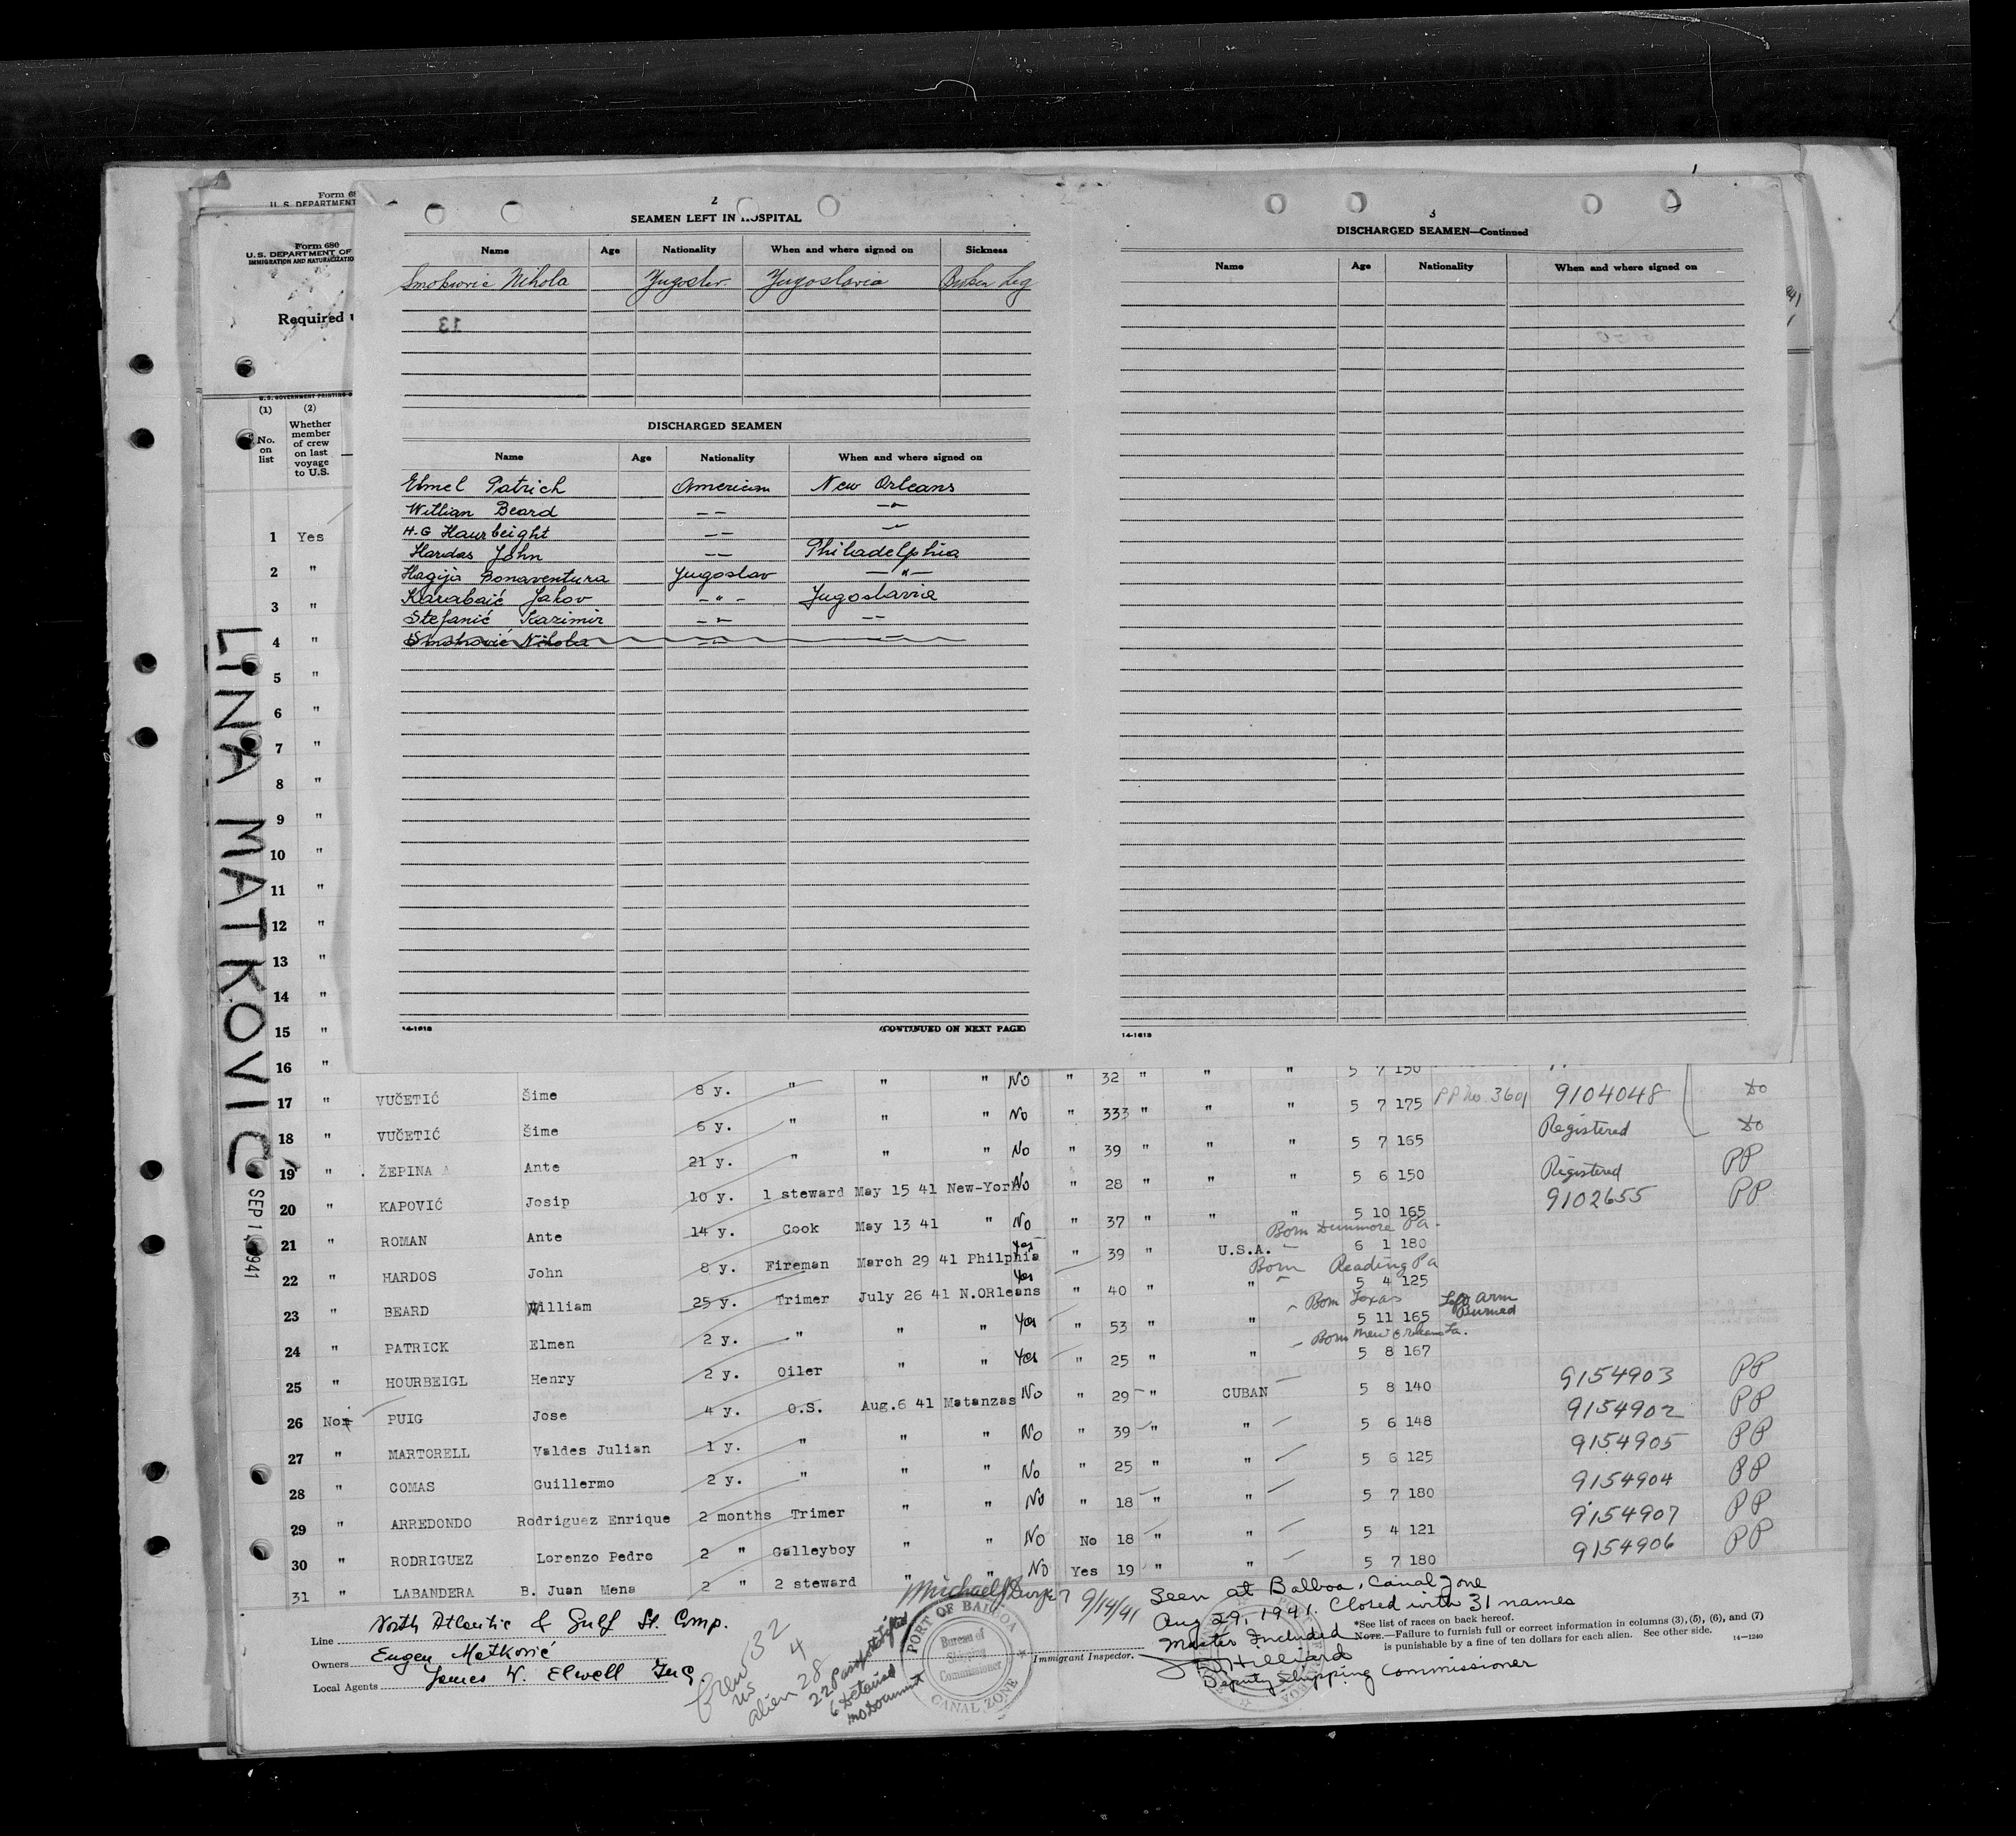 Form 68
U. S. DEPARTMENT
Form 680
U.S. DEPARTMENT OF
IMMIGRATION AND NATURALIZATIO
Required u
2
SEAMEN LEFT IN HOSPITAL
Name Age Nationality When and where signed on Sickness
Smoković Nikola Yugoslav. Yugoslavia Broken Leg
13
DISCHARGED SEAMEN
Name Age Nationality When and where signed on
Elmel Patrick American New Orleans
Willian Beard — —
H.G Haurbeight — —
Hardas John — — Philadelphia
Hagija Bonaventura Yugoslav — " —
Karabaić Jakov — " — Yugoslavia
Stefanić Kazimir — " — — —
Smoković Nikola — — —
14-1618 (CONTINUED ON NEXT PAGE)
3
DISCHARGED SEAMEN—Continued
Name Age Nationality When and where signed on
14-1618
U.S. GOVERNMENT PRINTING O
(1) (2)
No. on list
Whether member of crew on last voyage to U.S.
LINA MATKOVIĆ
SEP 1 1941
1 Yes
2 "
3 "
4 "
5 "
6 "
7 "
8 "
9 "
10 "
11 "
12 "
13 "
14 "
15 "
16 "
" " " No " 32 " " " 5 7 150
17 " VUČETIĆ Šime 8 y. " " " No " 333 " " " 5 7 175 PP No. 3601 9104048 Do
18 " VUČETIĆ Šime 6 y. " " " No " 39 " " " 5 7 165 Registered Do
19 " ŽEPINA Ante 21 y. " " " No " 28 " " " 5 6 150 Registered PP
20 " KAPOVIĆ Josip 10 y. 1 steward May 15 41 New-York No " 37 " " " 5 10 165 9102655 PP
21 " ROMAN Ante 14 y. Cook May 13 41 " No
Born Dunmore Pa.
22 " HARDOS John 8 y. Fireman March 29 41 Philphia Yes " 39 " U.S.A. 6 1 180
Born Reading Pa
23 " BEARD William 25 y. Trimer July 26 41 N.ORleans Yes " 40 " " 5 4 125
Born Texas Left arm Burned
24 " PATRICK Elmen 2 y. " " " Yes " 53 " " 5 11 165
Born New Orleans La.
25 " HOURBEIGL Henry 2 y. Oiler " " Yes " 25 " " 5 8 167
26 Non PUIG Jose 4 y. O.S. Aug.6 41 Matanzas No " 29 " CUBAN 5 8 140 9154903 PP
27 " MARTORELL Valdes Julian 1 y. " " " No " 39 " " 5 6 148 9154902 PP
28 " COMAS Guillermo 2 y. " " " No " 25 " " 5 6 125 9154905 PP
29 " ARREDONDO Rodriguez Enrique 2 months Trimer " " No " 18 " " 5 7 180 9154904 PP
30 " RODRIGUEZ Lorenzo Pedro 2 " Galleyboy " " No No 18 " " 5 4 121 9154907 PP
31 " LABANDERA B. Juan Mena 2 " 2 steward " " No Yes 19 " " 5 7 180 9154906 PP
Line North Atlantic & Gulf St. Cmp.
Owners Eugen Matković
Local Agents James W. Elwell Inc.
Crew 32
US 4
alien 28
22 Passports
6 Detained
no Document
PORT OF BALBOA
Bureau of Shipping Commissioner
CANAL ZONE
9/14/41
Immigrant Inspector.
Seen at Balboa, Canal Zone
Aug 29, 1941. Closed with 31 names
Master Included
Hilliard
Deputy Shipping Commissioner
*See list of races on back hereof.
NOTE.—Failure to furnish full or correct information in columns (3), (5), (6), and (7)
is punishable by a fine of ten dollars for each alien. See other side. 14—1240